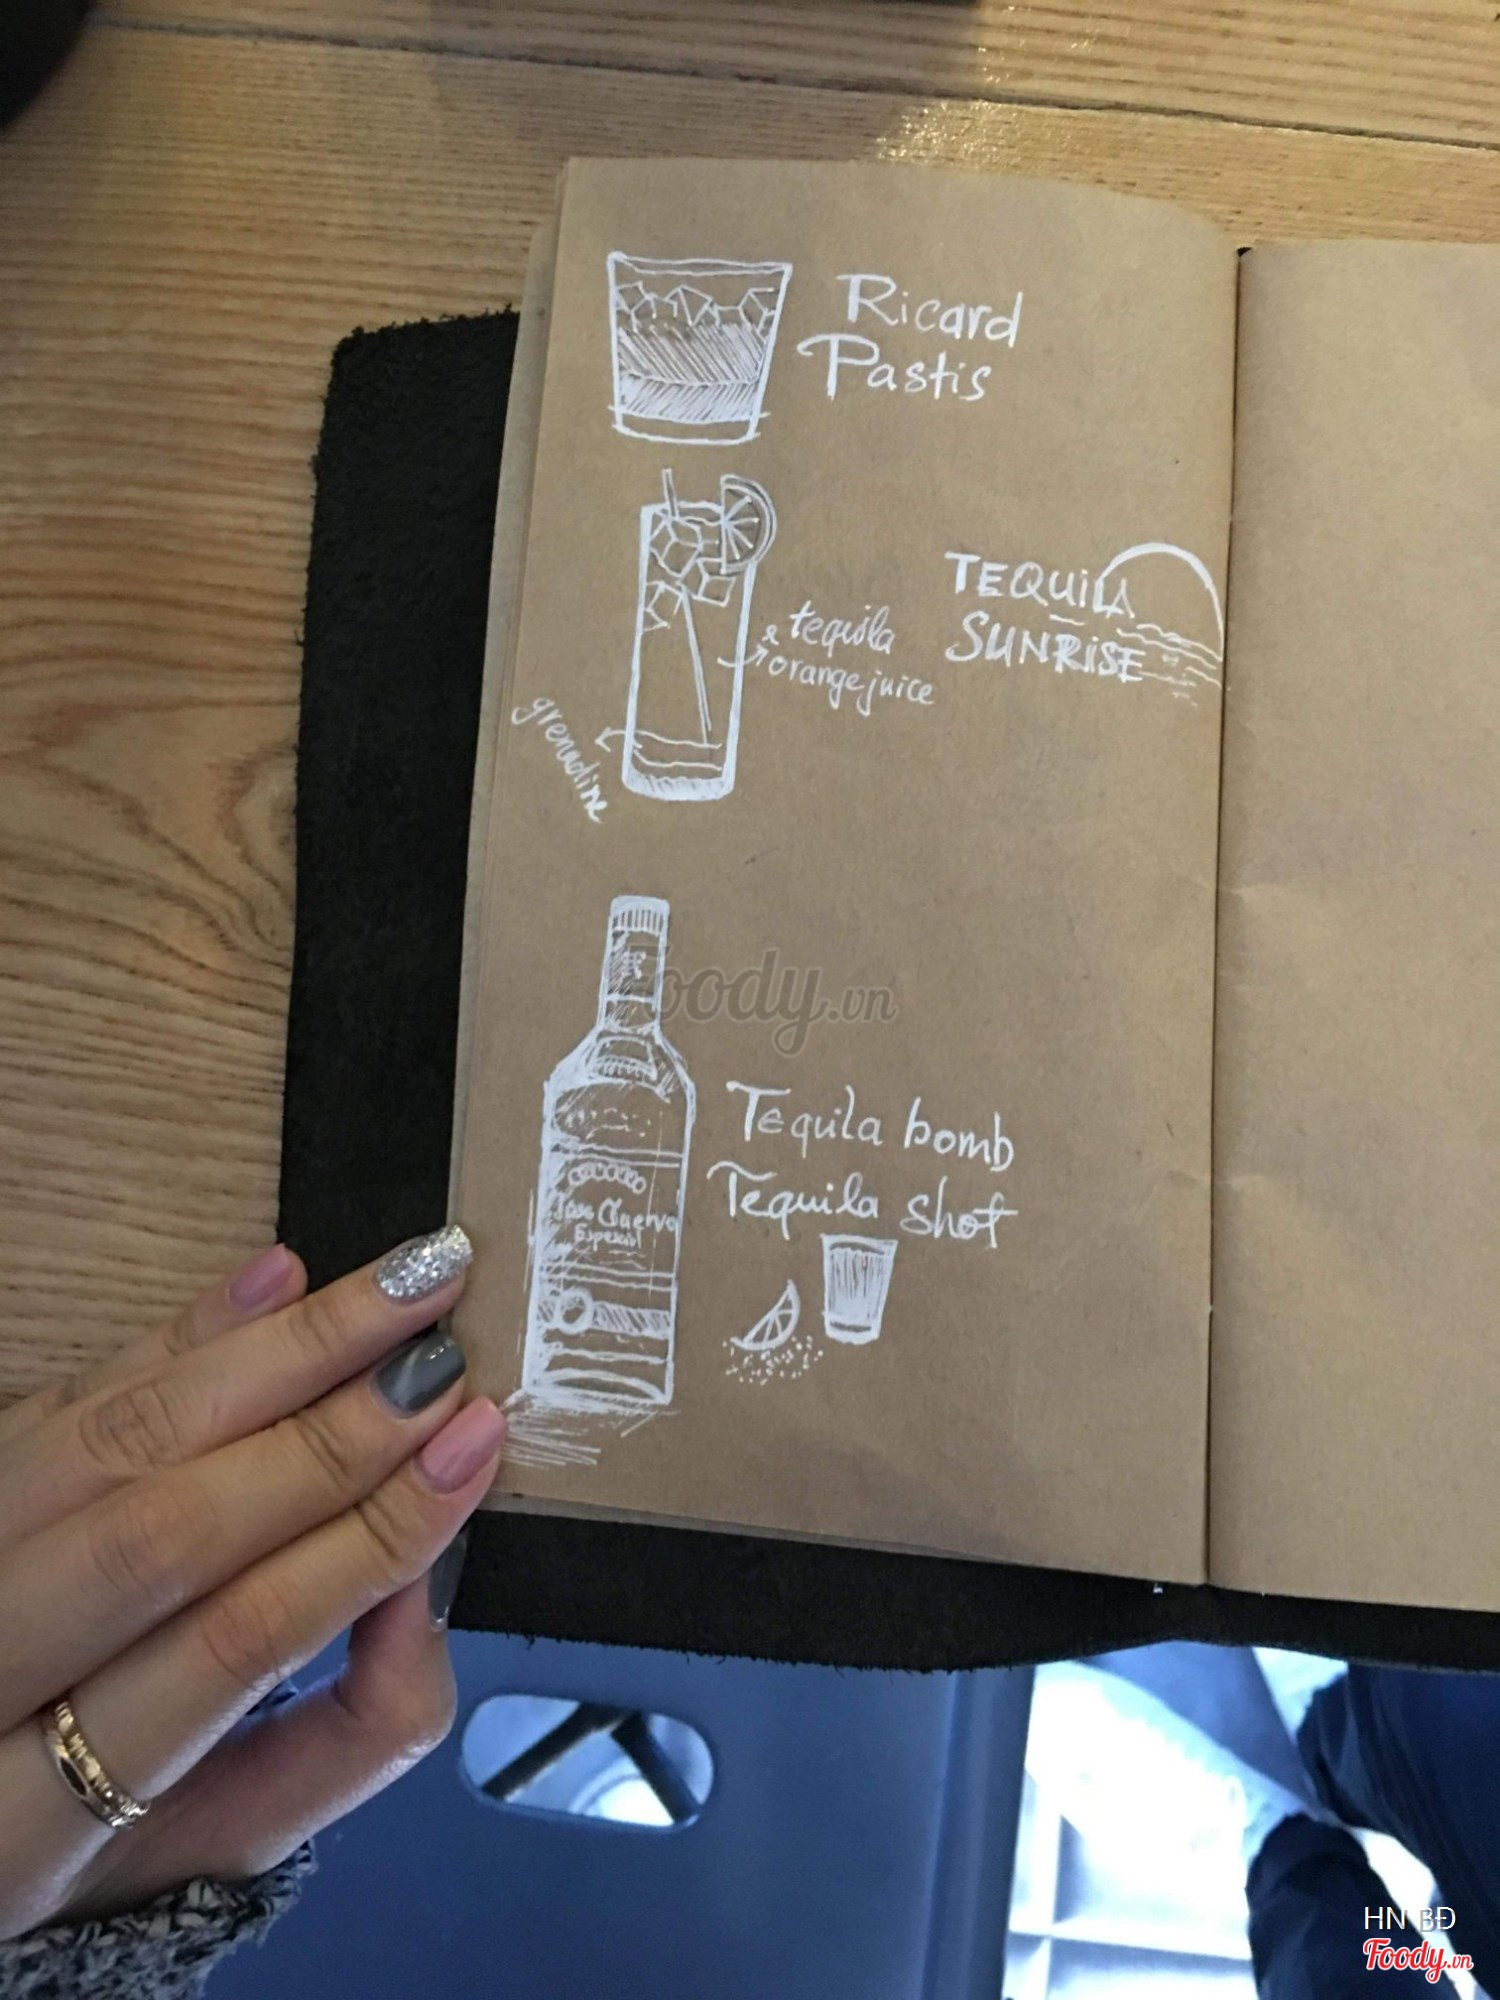 Ricard
Pastis
TEQUILA
SUNRISE
& tequila
orange juice
grenadine
Foody.vn
Tequila bomb
Tequila shot
Jose Cuervo
Especial
HN BĐ
Foody.vn